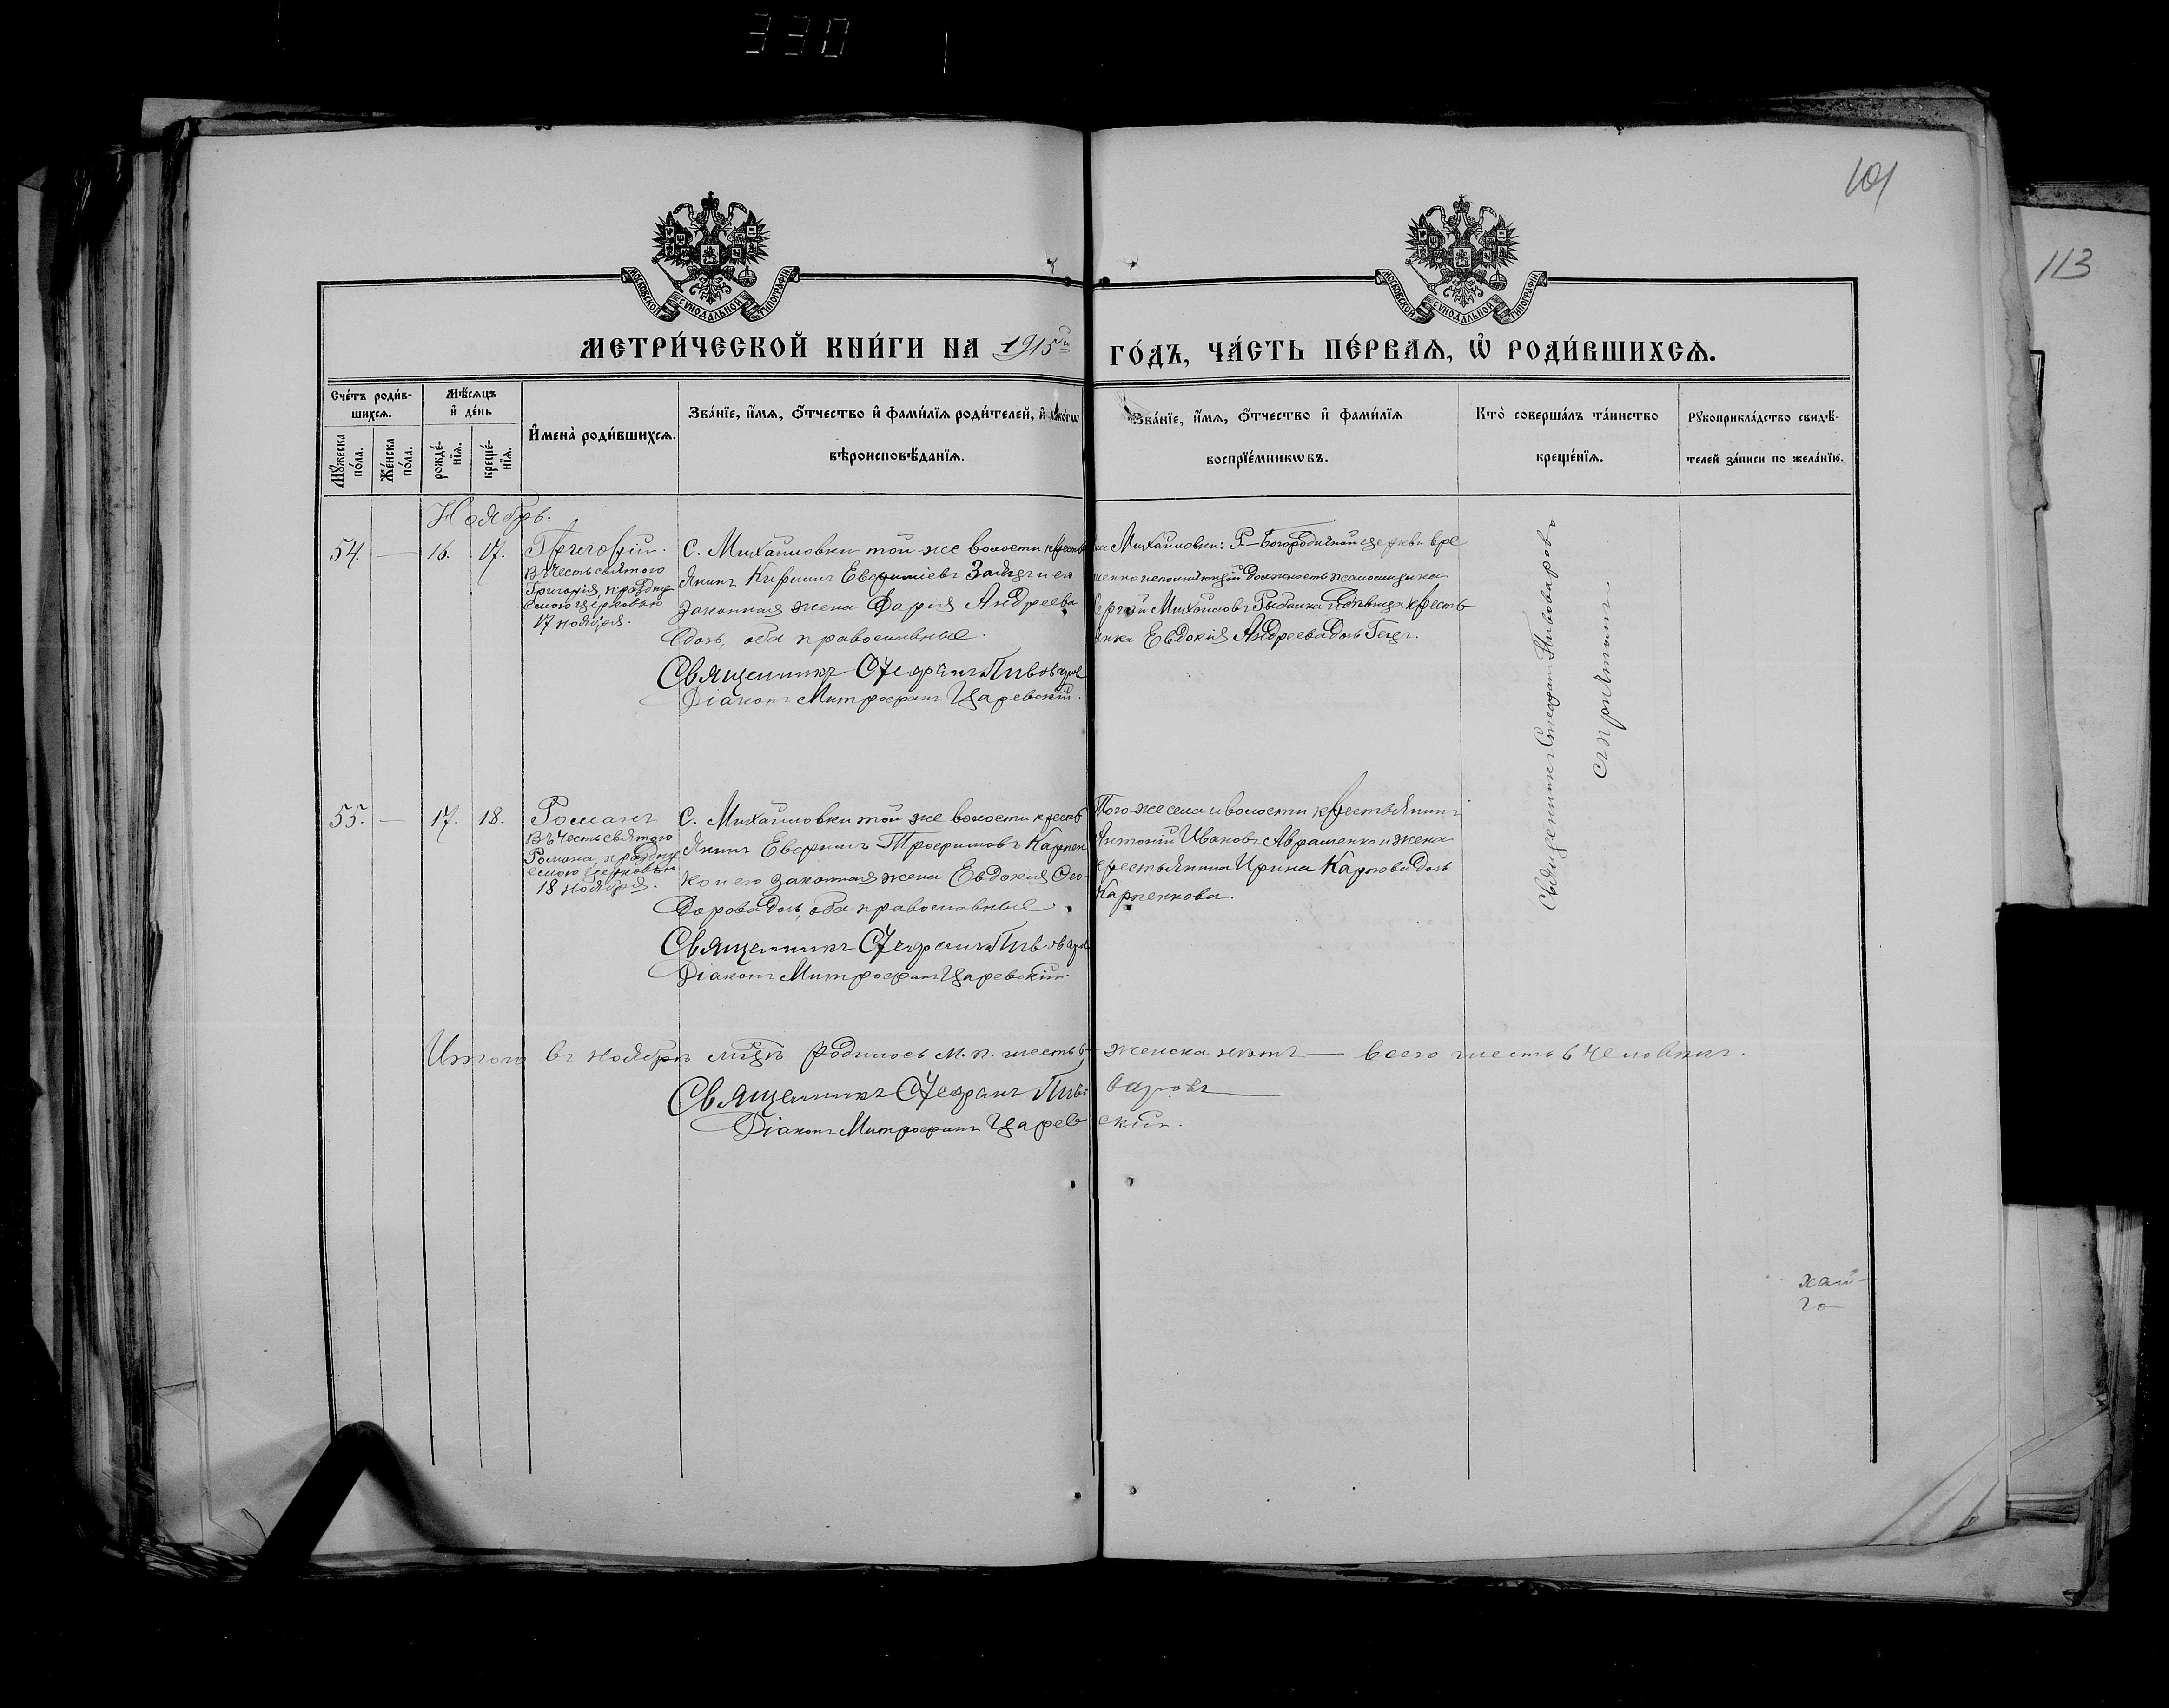 330
101
113
МОСКОВСКОЙ СѴНОДАЛЬНОЙ ТИПОГРАФІИ
МОСКОВСКОЙ СѴНОДАЛЬНОЙ ТИПОГРАФІИ
МЕТРИ́ЧЕСКОЙ КНИ́ГИ НА 1915й ГО́ДЪ, ЧА́СТЬ ПЕ́РВАѦ, Ѡ҆ РОДИ́ВШИХСѦ.
Сче́тъ роди́в-
шихсѧ.
Мꙋ́жеска по́ла.
Же́нска по́ла.
Мѣ́сѧцъ
и҆ де́нь
рожде́-
нїѧ.
креще́-
нїѧ.
И҆мена̀ роди́вшихсѧ.
Зва́нїе, и҆́мѧ, ѻ҆́тчество и҆ фами́лїѧ роди́телей, и҆ како́гѡ
вѣроисповѣ́данїѧ.
Зва́нїе, и҆́мѧ, ѻ҆́тчество и҆ фами́лїѧ
воспрїе́мникѡвъ.
Кто̀ соверша́лъ та́инство
креще́нїѧ.
Рꙋкоприкла́дство свидѣ́-
телей за́писи по жела́нїю.
Ноябрь.
54. — 16. 17. Григорій.
Въ честь святого
Григорія, праздну
емого церковью
17 ноября.
С. Михайловки той же волости кресть
янинъ Кириллъ Евфиміевъ Заяцъ и его
законная жена Дарія Андреева
дочь, оба православные.
Священникъ Стефанъ Пивоваров
Діаконъ Митрофанъ Царевскій.
Михайловки: Р-Богородичной церкви вре
менно исполняющій должность псаломщика
Сергій Михайловъ Рыбалка и дѣвица кресть
янка Евдокія Андреева дочь Гецъ.
Священникъ Стефанъ Пивоваровъ
съ причтомъ.
55. — 17. 18. Романъ
Въ честь святого
Романа, праздну
емого церковью
18 ноября.
С. Михайловки той же волости кресть
янинъ Евфимъ Трофимовъ Карпен
ко и его законная жена Евдокія Ѳео-
дорова дочь, оба православные.
Священникъ Стефанъ Пивовар
Діаконъ Митрофанъ Царевскій.
Того же села и волости крестьянинъ
Антоній Ивановъ Авраменко и жена
крестьянина Ирина Карпова дочь
Карпенкова.
Итого въ ноябрѣ мѣсцѣ родилось м. п. шесть 6 женска нѣтъ — всего шесть 6 человѣкъ.
Священникъ Стефанъ Пивоваровъ
Діаконъ Митрофанъ Царевскій.
хай-
го